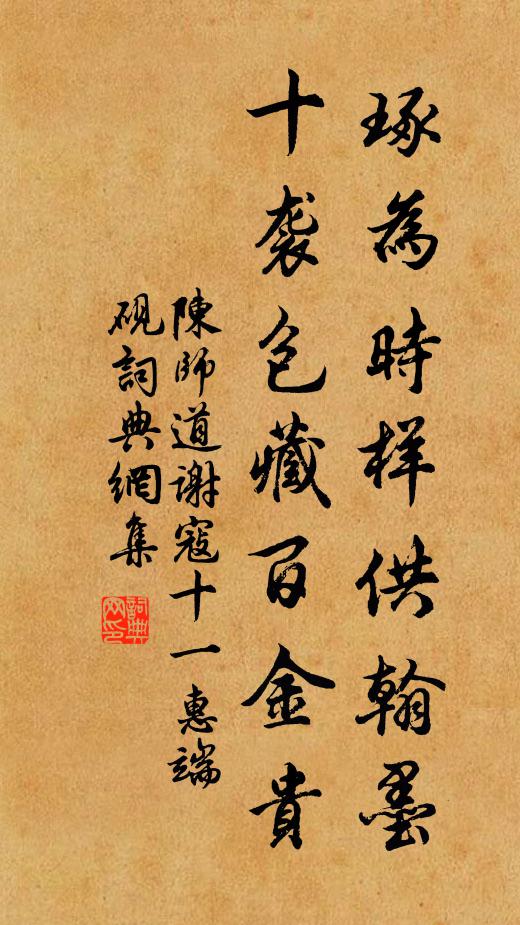 琢為時样供翰墨
十袭包藏百金貴
陳師道谢寇十一惠端
硯詞典網集
詞典
网印